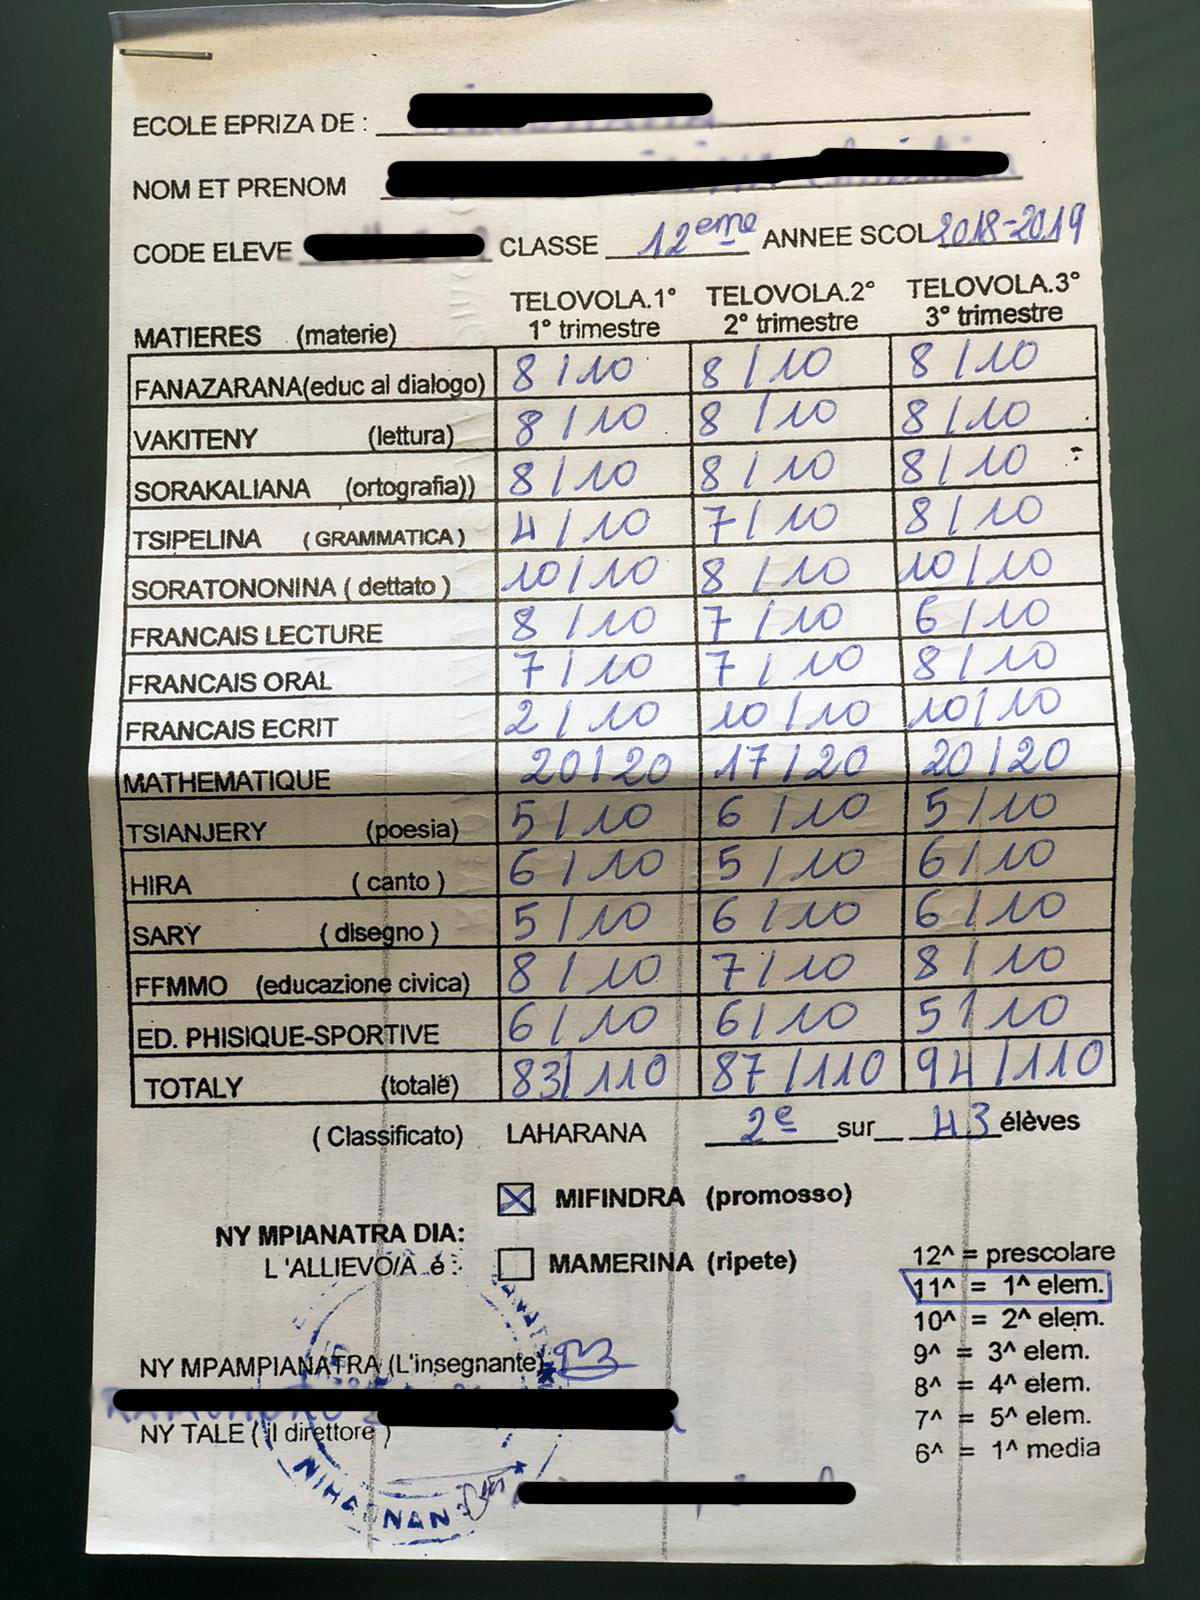 ECOLE EPRIZA DE :
NOM ET PRENOM
CODE ELEVE CLASSE 12eme ANNEE SCOL 2018-2019
MATIERES (materie) TELOVOLA.1° 1° trimestre TELOVOLA.2° 2° trimestre TELOVOLA.3° 3° trimestre
FANAZARANA(educ al dialogo) 8/10 8/10 8/10
VAKITENY (lettura) 8/10 8/10 8/10
SORAKALIANA (ortografia)) 8/10 8/10 8/10
TSIPELINA (GRAMMATICA) 4/10 7/10 8/10
SORATONONINA ( dettato ) 10/10 8/10 10/10
FRANCAIS LECTURE 8/10 7/10 6/10
FRANCAIS ORAL 7/10 7/10 8/10
FRANCAIS ECRIT 2/10 10/10 10/10
MATHEMATIQUE 20/20 17/20 20/20
TSIANJERY (poesia) 5/10 6/10 5/10
HIRA ( canto ) 6/10 5/10 6/10
SARY ( disegno ) 5/10 6/10 6/10
FFMMO (educazione civica) 8/10 7/10 8/10
ED. PHISIQUE-SPORTIVE 6/10 6/10 5/10
TOTALY (totale) 83/110 87/110 94/110
( Classificato) LAHARANA 2e sur 43 élèves
MIFINDRA (promosso)
NY MPIANATRA DIA:
L'ALLIEVO/A é :
MAMERINA (ripete)
12^ = prescolare
11^ = 1^ elem.
10^ = 2^ elem.
9^ = 3^ elem.
8^ = 4^ elem.
7^ = 5^ elem.
6^ = 1^ media
NY MPAMPIANATRA (L'insegnante)
NY TALE ( il direttore )